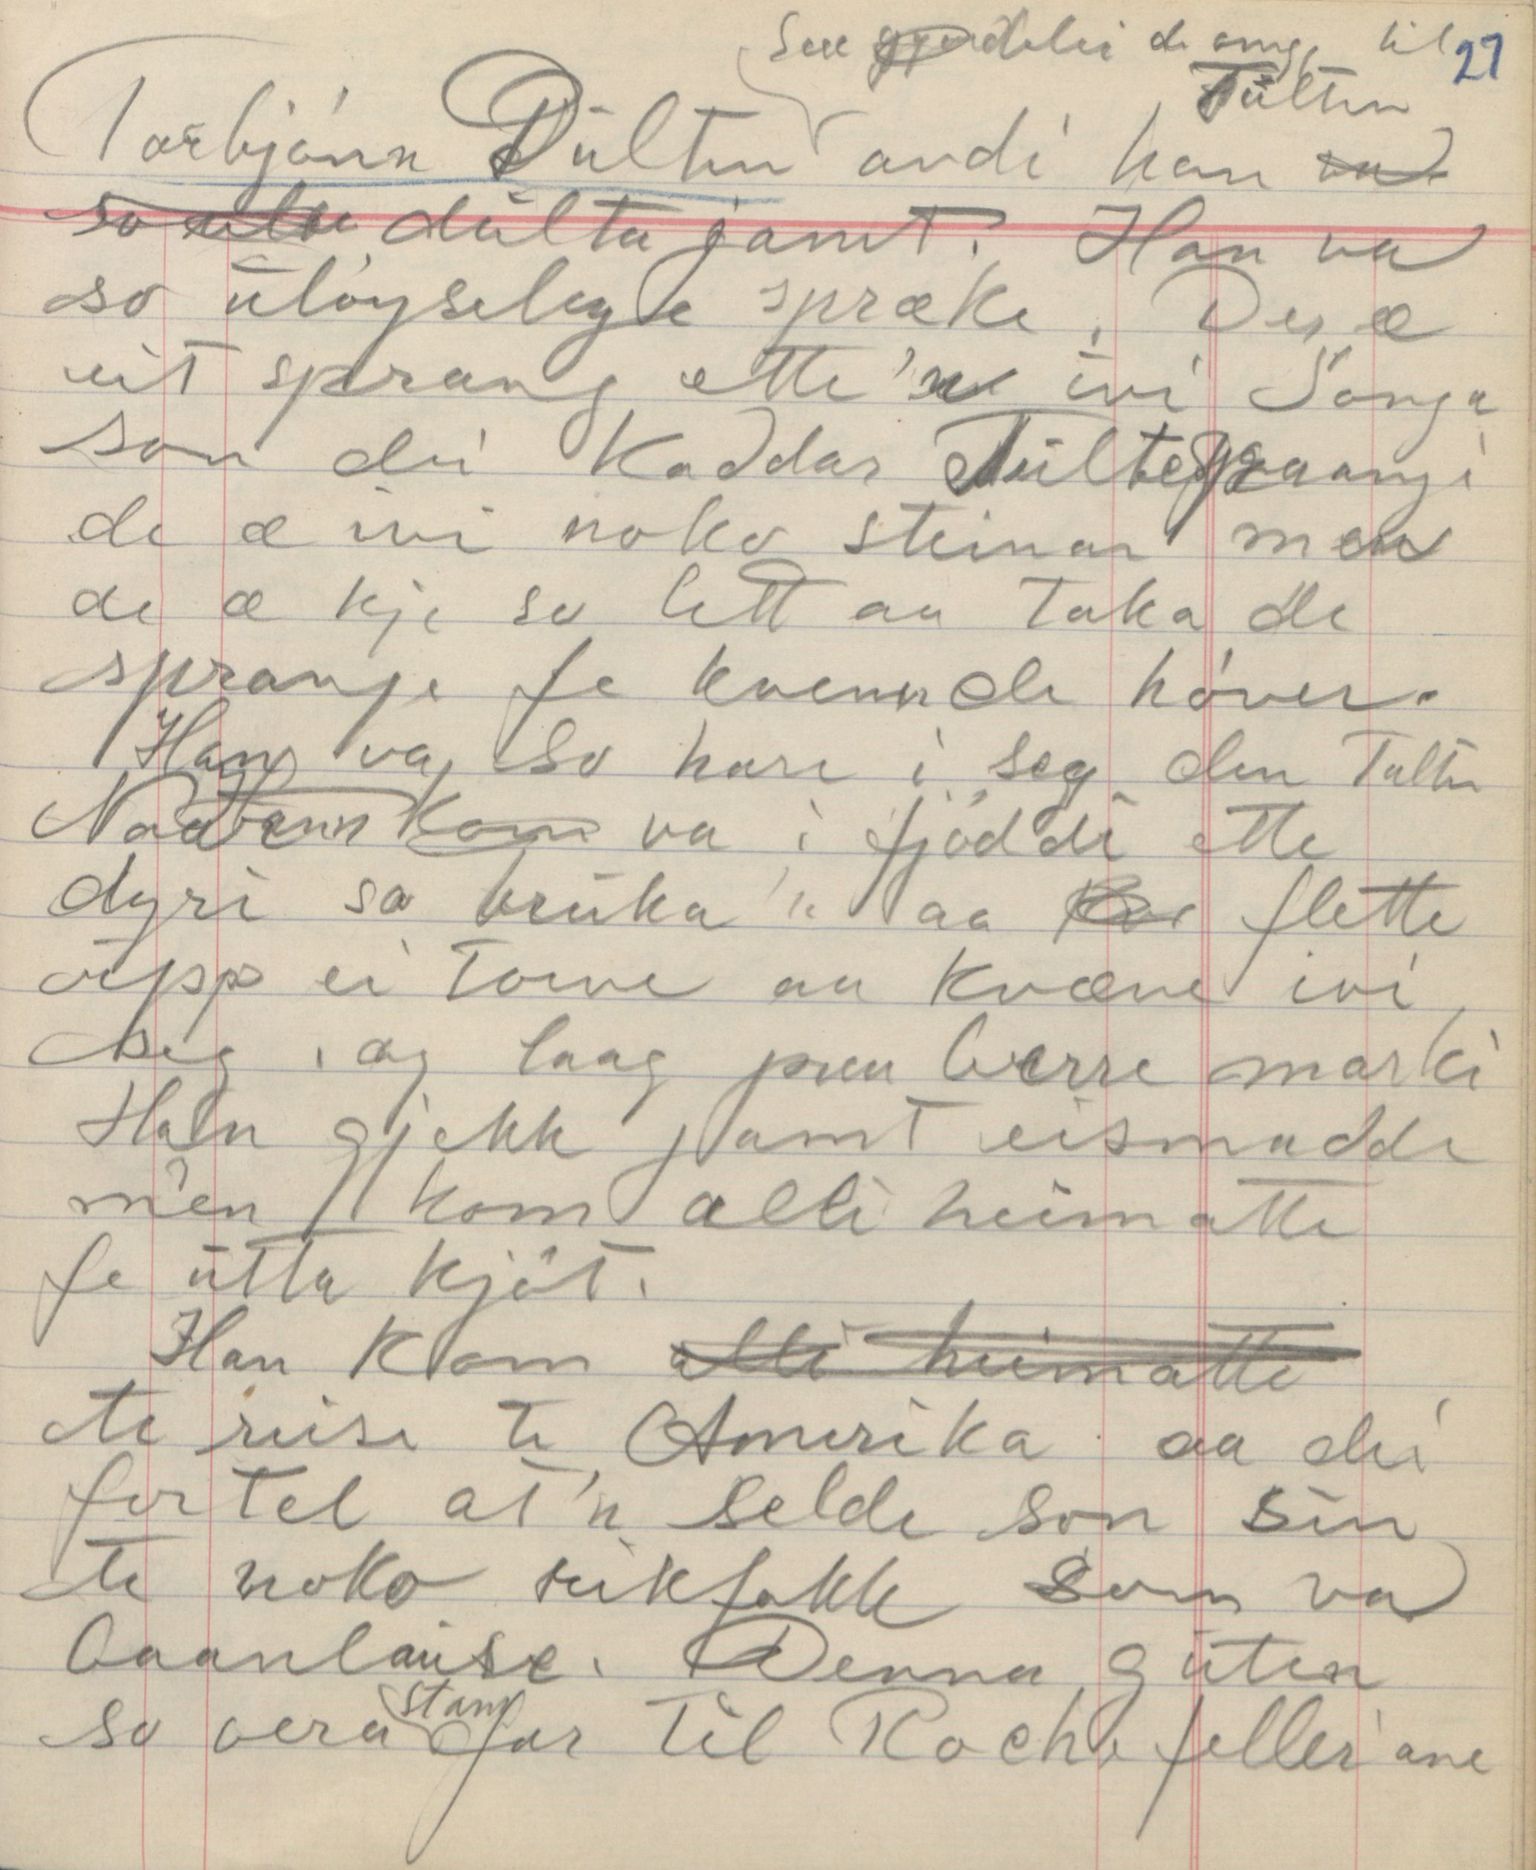 27
Tarbjønn Dültin { See gjordelei de amg. til Tültin } avdi han va
so ulv dülta jamt. Han va
so üløyselege spræke. Der æ
eit sprang ette 'n ivi Songa
som dei kaddar Tültesprangi
de æ ivi noko steinar men
de æ kje so lett aa taka de
sprange fe kvemm de høver.
Han va so hare i seg den Tultin
Naar'en kom va i fjøddi ette
dyri so brüka 'n aa flette
üpp ei torve aa kvæve ivi
seg, og laag paa berre marki
Han gjekk jamt eismadde
men kom alli heimatte
fe ütta kjøt.
Han kom alli heimatte
te reise te Amerika aa dei
fortel at'n selde son sin
te noko rikfokk som va
baanlause. Denna güten
so vera stamfar til Rochefelleriane